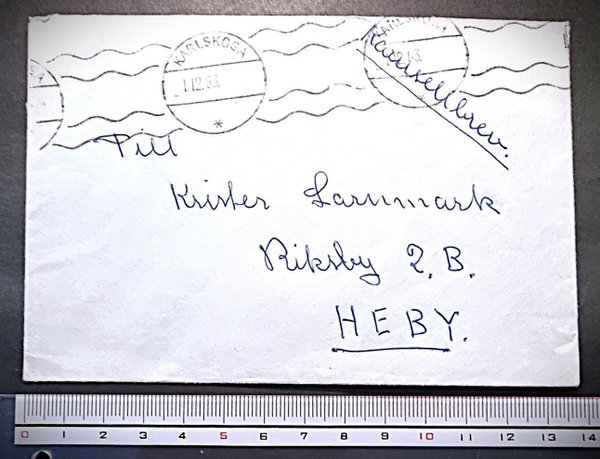 KARLSKOGA
KARLSKOGA
-1.12.63
Till
Krister Larnmark
Riksby 2. B.
HEBY.
0 1 2 3 4 5 6 7 8 9 10 11 12 13 14